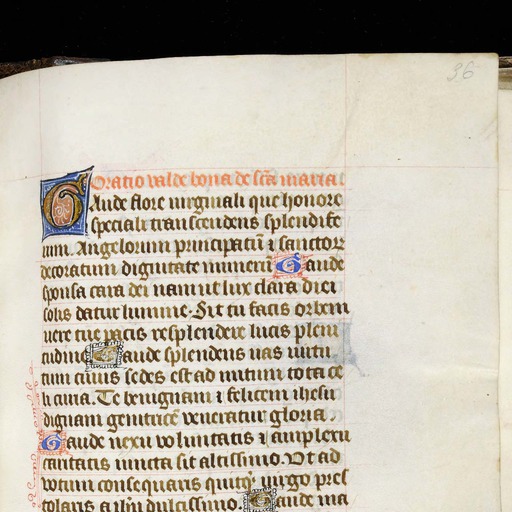 36
Oratio valde bona de scā maria
Gaude flore uirginali que honore
speciali transcendens splendife
rum. Angelorum principatū ⁊ sanctoꝝ
decoratum dignitate munerū Gaude
sponsa cara dei nam ut lux clara diei
solis datur lumine. Sic tu facis orbem
uere tue pacis resplendere lucis pleni
tudine Gaude splendens uas uirtu
tum cuius sedes est ad nutum tota ce
li curia. Te benignam ⁊ felicem ihesu
dignam genitricē veneratur gloria.
Gaude nexu voluntatis ⁊ amplexu
caritatis iuncta sic altissimo. Vt ad
votum consequaris quitꝙ uirgo pos
tolaris a ihū dulcissimo. Gaude ma